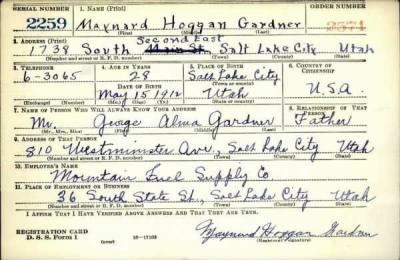 SERIAL NUMBER
1. NAME (Print)
ORDER NUMBER
2259
Maynard Hoggan Gardner
2574
(First) (Middle) (Last)
2. ADDRESS (Print)
Second East
1738 South Main St., Salt Lake City Utah
(Number and street or R. F. D. number) (Town) (County) (State)
3. TELEPHONE
4. AGE IN YEARS
5. PLACE OF BIRTH
6. COUNTRY OF CITIZENSHIP
6-3065
28
Salt Lake City
DATE OF BIRTH
(Town) (County)
May 15 1912
Utah
U.S.A.
(Exchange) (Number) (Mo.) (Day) (Yr.) (State or country)
7. NAME OF PERSON WHO WILL ALWAYS KNOW YOUR ADDRESS
8. RELATIONSHIP OF THAT PERSON
Mr. George Alma Gardner
Father
(Mr., Mrs., Miss) (First) (Middle) (Last)
9. ADDRESS OF THAT PERSON
810 Westminster Ave., Salt Lake City Utah
(Number and street or R. F. D. number) (Town) (County) (State)
10. EMPLOYER'S NAME
Mountain Fuel Supply Co
11. PLACE OF EMPLOYMENT OR BUSINESS
36 South State St., Salt Lake City Utah
(Number and street or R. F. D. number) (Town) (County) (State)
I AFFIRM THAT I HAVE VERIFIED ABOVE ANSWERS AND THAT THEY ARE TRUE.
REGISTRATION CARD
D. S. S. Form 1
16-17105
Maynard Hoggan Gardner
(Registrant's signature)